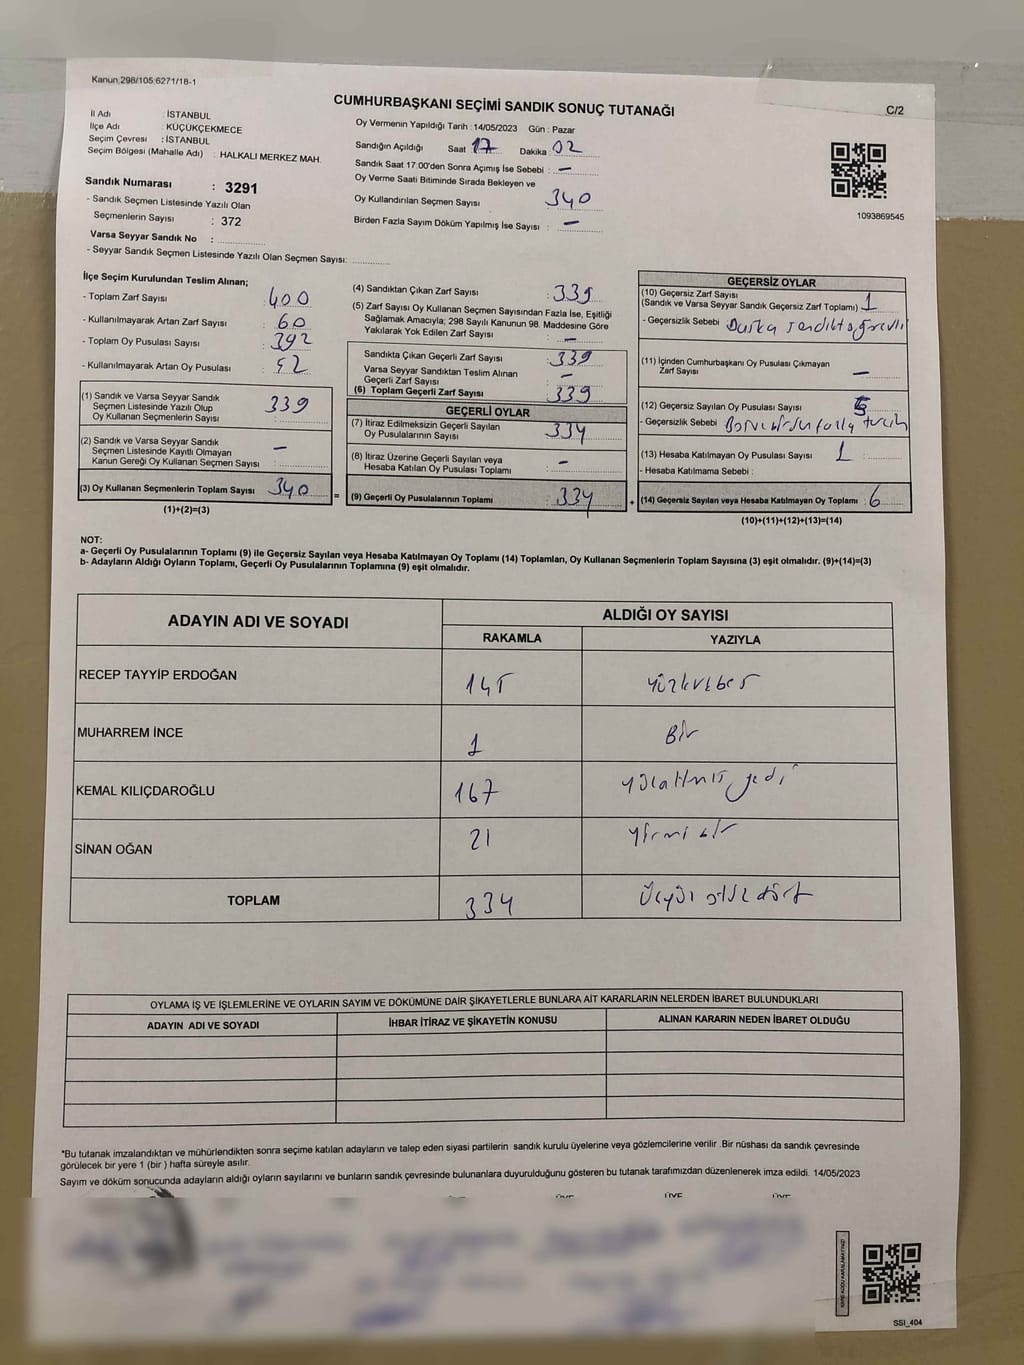 Kanun 298/105 6271/18-1
CUMHURBAŞKANI SEÇİMİ SANDIK SONUÇ TUTANAĞI
C/2
İl Adı : İSTANBUL
İlçe Adı : KÜÇÜKÇEKMECE
Seçim Çevresi : İSTANBUL
Seçim Bölgesi (Mahalle Adı) : HALKALI MERKEZ MAH.
Sandık Numarası : 3291
- Sandık Seçmen Listesinde Yazılı Olan
Seçmenlerin Sayısı : 372
Varsa Seyyar Sandık No :
- Seyyar Sandık Seçmen Listesinde Yazılı Olan Seçmen Sayısı:
Oy Vermenin Yapıldığı Tarih : 14/05/2023 Gün : Pazar
Sandığın Açıldığı Saat 17 Dakika 02
Sandık Saat 17:00'den Sonra Açımış İse Sebebi : —
Oy Verme Saati Bitiminde Sırada Bekleyen ve
Oy Kullandırılan Seçmen Sayısı 340
Birden Fazla Sayım Döküm Yapılmış İse Sayısı : —
1093869545
İlçe Seçim Kurulundan Teslim Alınan;
- Toplam Zarf Sayısı : 400
- Kullanılmayarak Artan Zarf Sayısı : 60
- Toplam Oy Pusulası Sayısı : 392
- Kullanılmayarak Artan Oy Pusulası : 52
(1) Sandık ve Varsa Seyyar Sandık
Seçmen Listesinde Yazılı Olup
Oy Kullanan Seçmenlerin Sayısı : 339
(2) Sandık ve Varsa Seyyar Sandık
Seçmen Listesinde Kayıtlı Olmayan
Kanun Gereği Oy Kullanan Seçmen Sayısı : —
(3) Oy Kullanan Seçmenlerin Toplam Sayısı : 340
(1)+(2)=(3)
=
(4) Sandıktan Çıkan Zarf Sayısı : 339
(5) Zarf Sayısı Oy Kullanan Seçmen Sayısından Fazla İse, Eşitliği
Sağlamak Amacıyla; 298 Sayılı Kanunun 98. Maddesine Göre
Yakılarak Yok Edilen Zarf Sayısı : —
Sandıkta Çıkan Geçerli Zarf Sayısı : 339
Varsa Seyyar Sandıktan Teslim Alınan
Geçerli Zarf Sayısı : —
(6) Toplam Geçerli Zarf Sayısı : 339
GEÇERLİ OYLAR
(7) İtiraz Edilmeksizin Geçerli Sayılan
Oy Pusulalarının Sayısı : 334
(8) İtiraz Üzerine Geçerli Sayılan veya
Hesaba Katılan Oy Pusulası Toplamı : —
(9) Geçerli Oy Pusulalarının Toplamı : 334
+
GEÇERSİZ OYLAR
(10) Geçersiz Zarf Sayısı
(Sandık ve Varsa Seyyar Sandık Geçersiz Zarf Toplamı) : 1
- Geçersizlik Sebebi : Başka sandıkta görevli
(11) İçinden Cumhurbaşkanı Oy Pusulası Çıkmayan
Zarf Sayısı : —
(12) Geçersiz Sayılan Oy Pusulası Sayısı : 5
- Geçersizlik Sebebi : fazla tercih
(13) Hesaba Katılmayan Oy Pusulası Sayısı : 1
- Hesaba Katılmama Sebebi :
(14) Geçersiz Sayılan veya Hesaba Katılmayan Oy Toplamı : 6
(10)+(11)+(12)+(13)=(14)
NOT:
a- Geçerli Oy Pusulalarının Toplamı (9) ile Geçersiz Sayılan veya Hesaba Katılmayan Oy Toplamı (14) Toplamları, Oy Kullanan Seçmenlerin Toplam Sayısına (3) eşit olmalıdır. (9)+(14)=(3)
b- Adayların Aldığı Oyların Toplamı, Geçerli Oy Pusulalarının Toplamına (9) eşit olmalıdır.
ADAYIN ADI VE SOYADI ALDIĞI OY SAYISI
RAKAMLA YAZIYLA
RECEP TAYYİP ERDOĞAN 145 yüzkırkbeş
MUHARREM İNCE 1 Bir
KEMAL KILIÇDAROĞLU 167 yüzaltmış yedi
SİNAN OĞAN 21 yirmi bir
TOPLAM 334 Üçyüz otuz dört
OYLAMA İŞ VE İŞLEMLERİNE VE OYLARIN SAYIM VE DÖKÜMÜNE DAİR ŞİKAYETLERLE BUNLARA AİT KARARLARIN NELERDEN İBARET BULUNDUKLARI
ADAYIN ADI VE SOYADI İHBAR İTİRAZ VE ŞİKAYETİN KONUSU ALINAN KARARIN NEDEN İBARET OLDUĞU
*Bu tutanak imzalandıktan ve mühürlendikten sonra seçime katılan adayların ve talep eden siyasi partilerin sandık kurulu üyelerine veya gözlemcilerine verilir .Bir nüshası da sandık çevresinde
görülecek bir yere 1 (bir ) hafta süreyle asılır.
Sayım ve döküm sonucunda adayların aldığı oyların sayılarını ve bunların sandık çevresinde bulunanlara duyurulduğunu gösteren bu tutanak tarafımızdan düzenlenerek imza edildi. 14/05/2023
ÜYE ÜYE ÜYE ÜYE
SSI_404